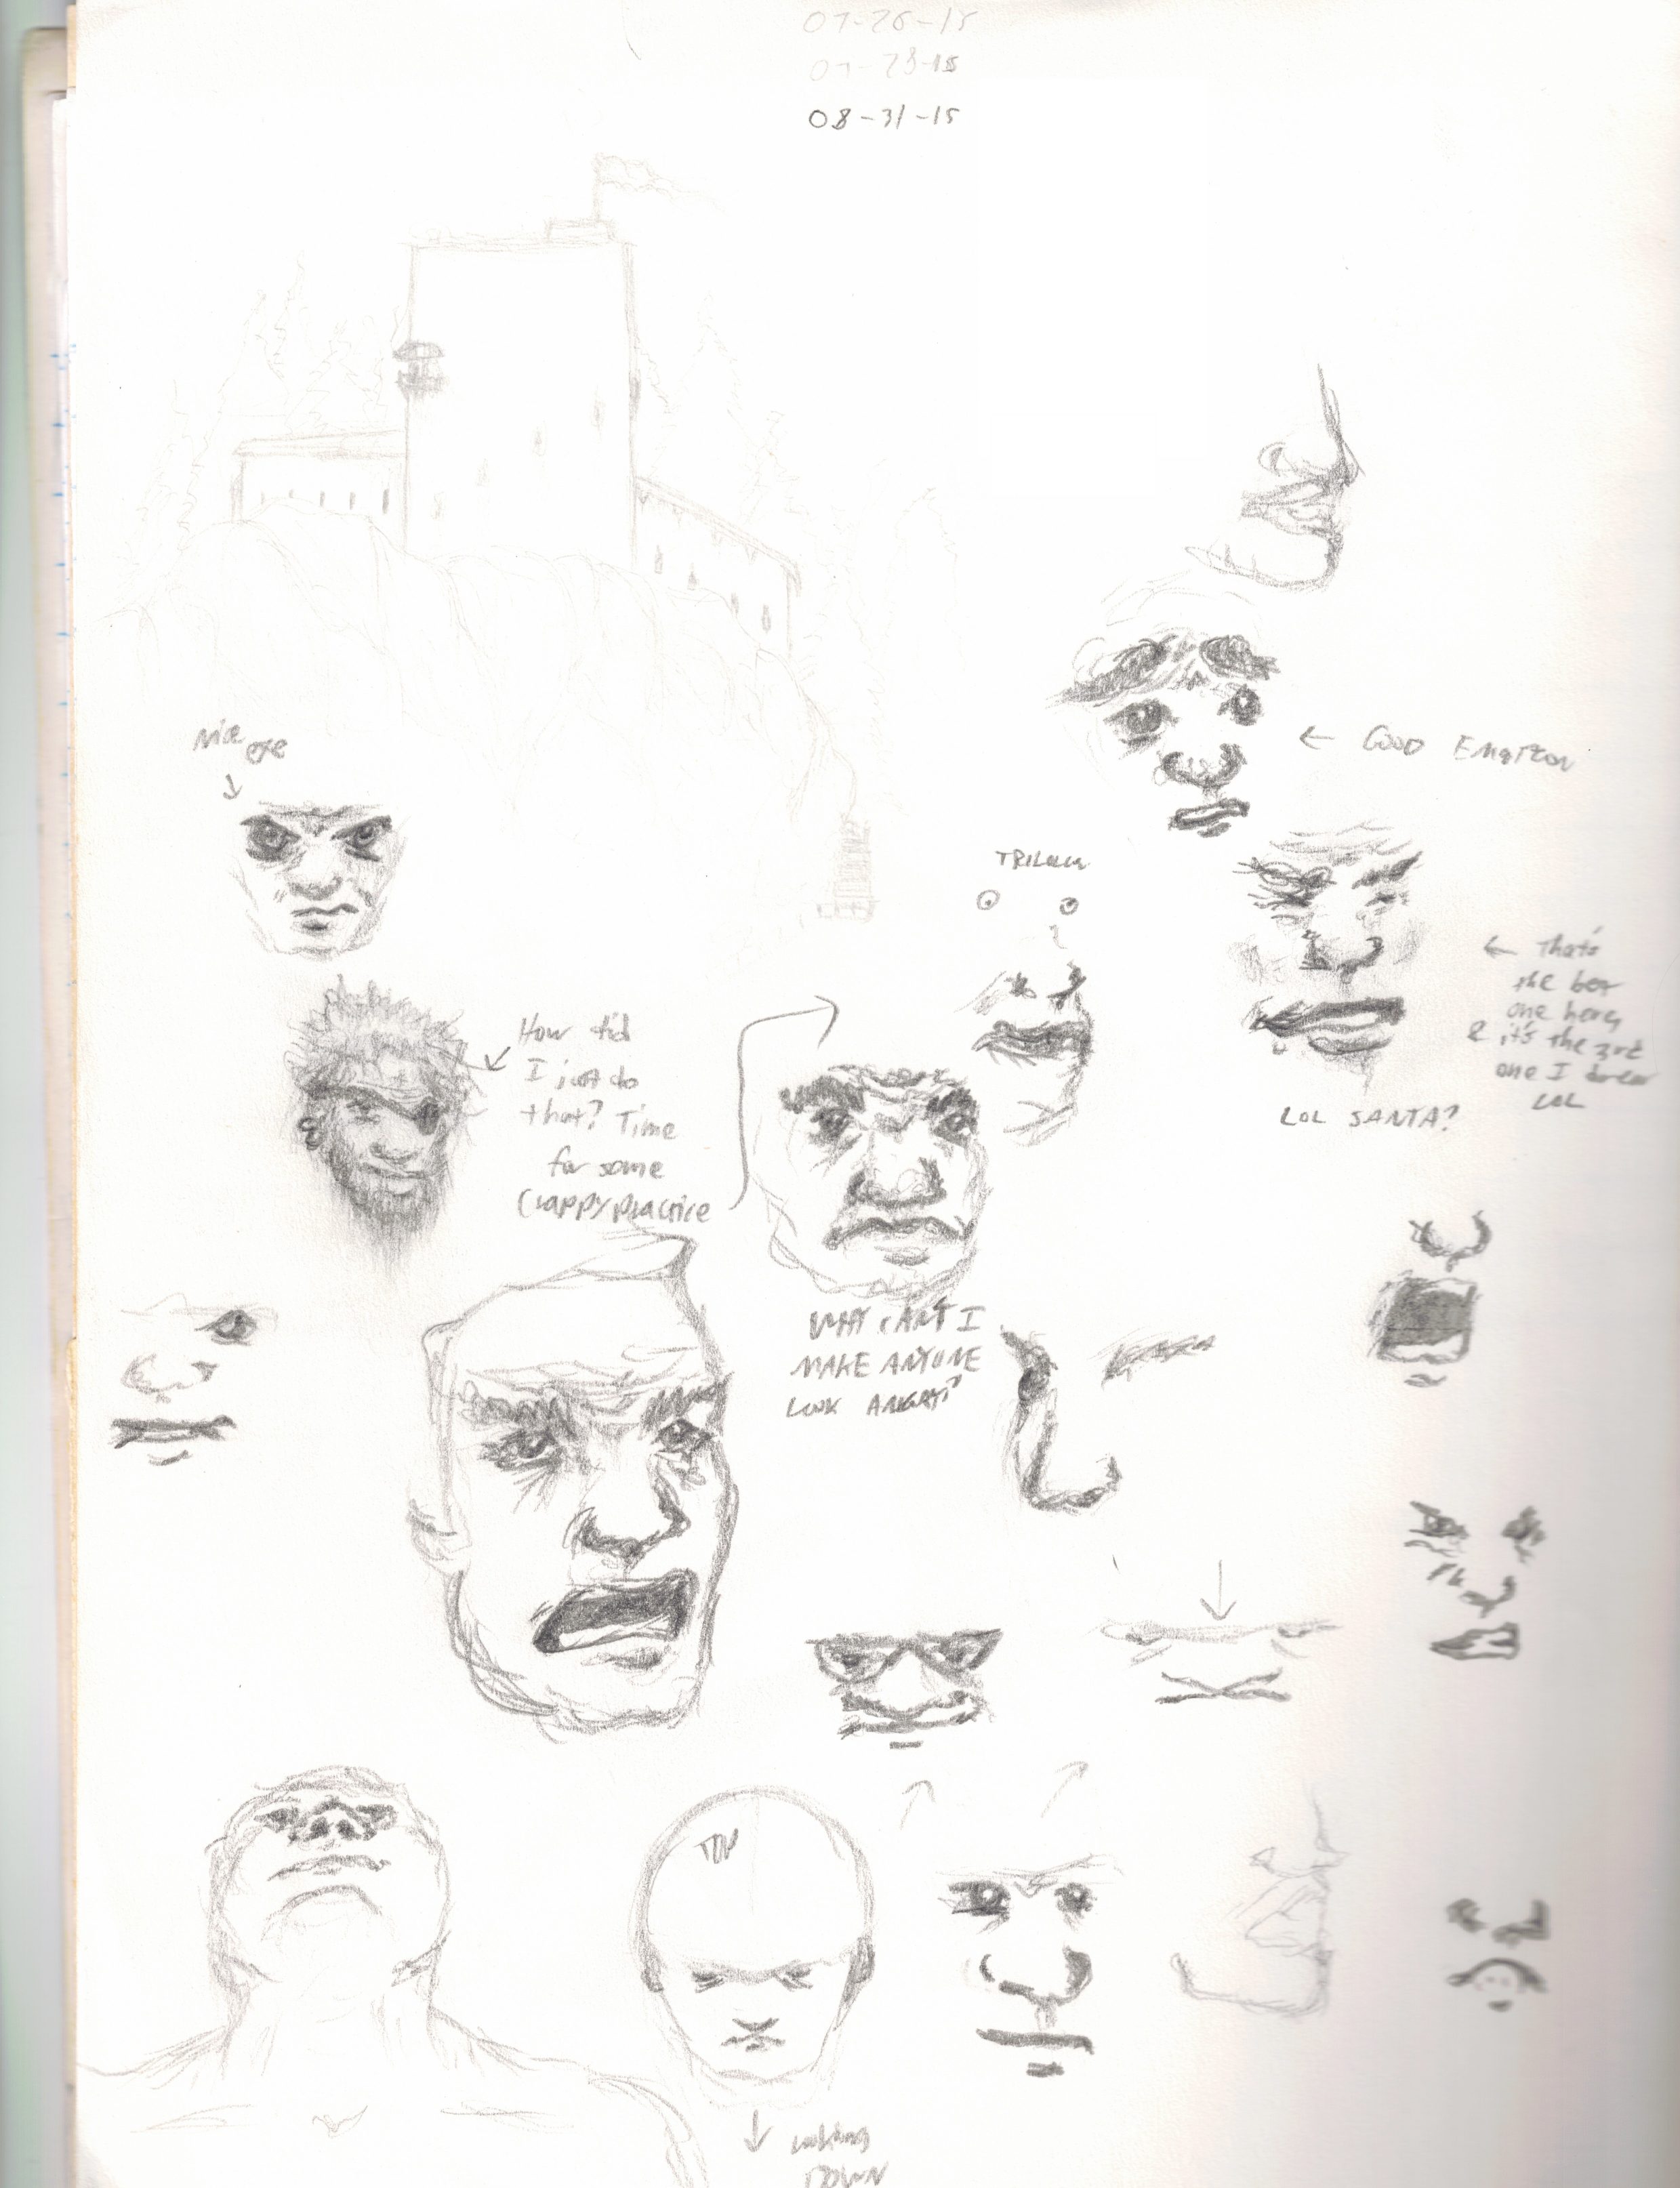 07-26-15
07-28-15
08-31-15
Nice
eye
← GOOD EMOTION
← That's
the best
one here,
& it's the 3rd
one I drew
LOL
LOL SANTA?
How did
I just do
that? Time
for some
crappy practice
WHY CAN'T I
MAKE ANYONE
LOOK ANGRY?
TOP
looking
DOWN